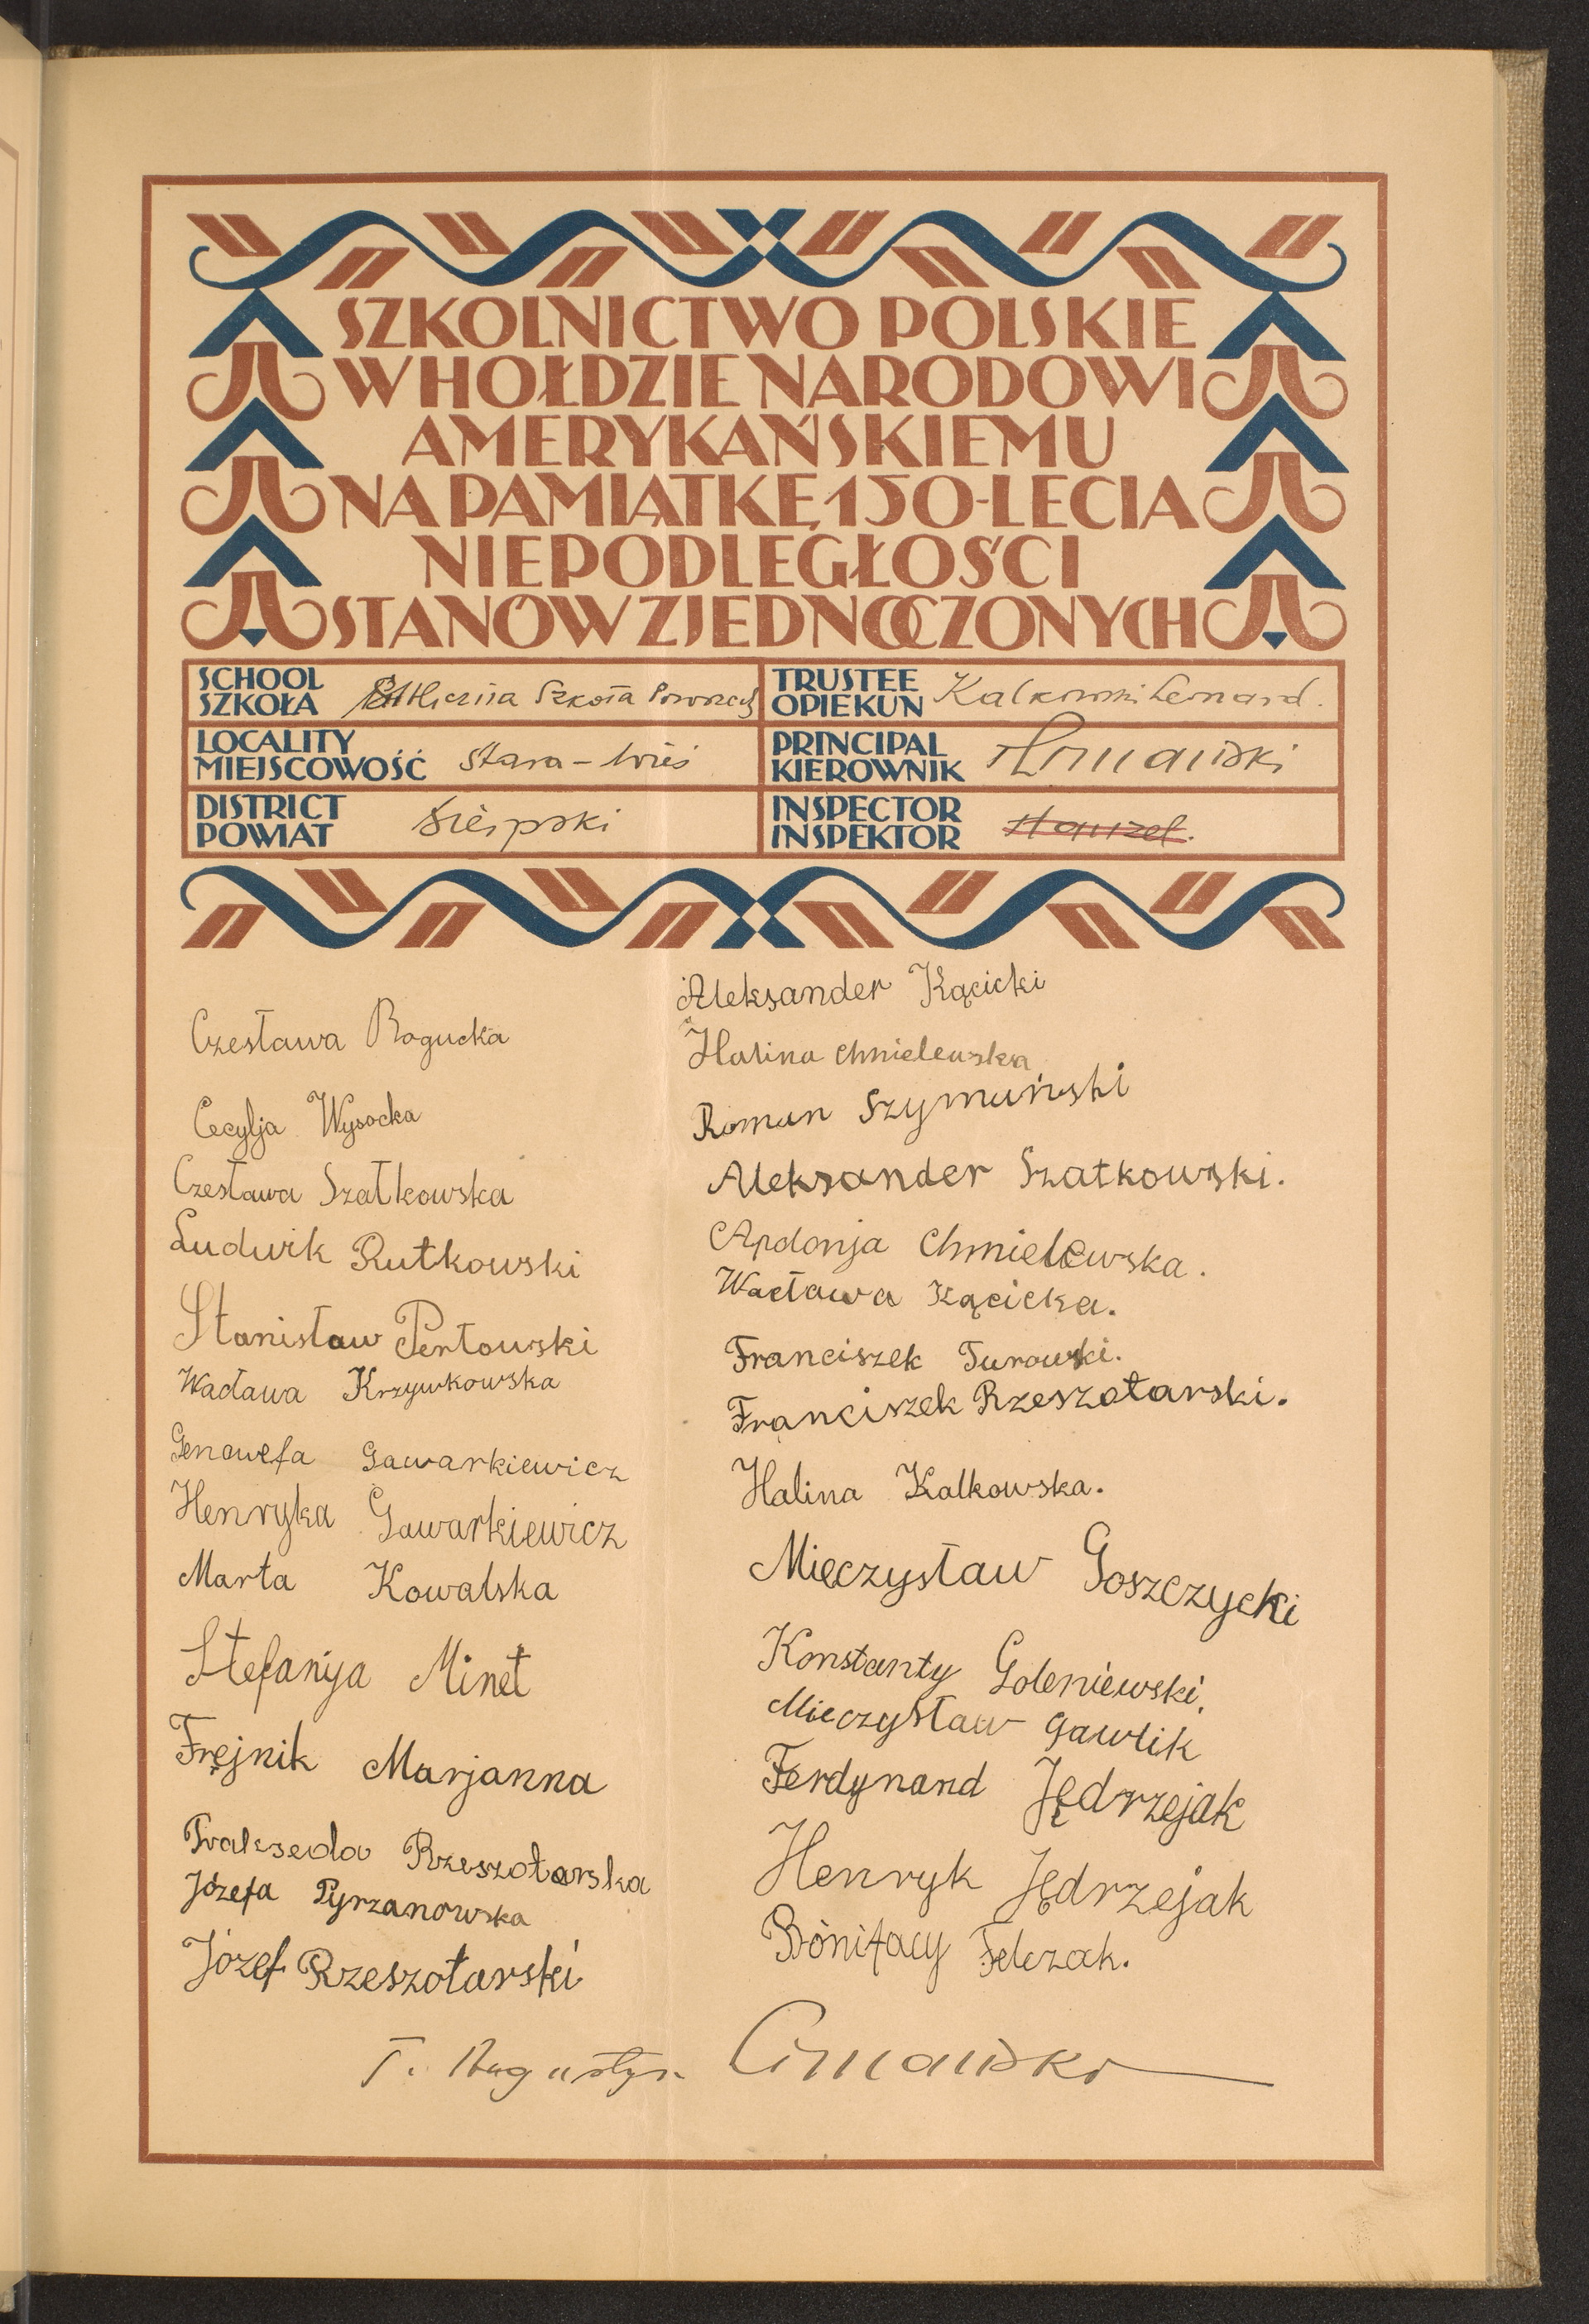 SZKOLNICTWO POLSKIE
W HOŁDZIE NARODOWI
AMERYKAŃSKIEMU
NA PAMIĄTKĘ 150-LECIA
NIEPODLEGŁOŚCI
STANÓW ZJEDNOCZONYCH
SCHOOL
SZKOŁA Publiczna Szkoła Powszech
LOCALITY
MIEJSCOWOŚĆ Stara-Wieś
DISTRICT
POWIAT Sierpski
TRUSTEE
OPIEKUN Kalkowski Lenard.
PRINCIPAL
KIEROWNIK
INSPECTOR
INSPEKTOR
Czesława Rogucka
Cecylja Wysocka
Czesława Szatkowska
Ludwik Rutkowski
Stanisław Pertowski
Wacława Krzywkowska
Genowefa Gawarkiewicz
Henryka Gawarkiewicz
Marta Kowalska
Stefanija Minet
Frejnik Marjanna
Prakseda Rzeszotarska
Józefa Pyrzanowska
Józef Rzeszotarski
T. Augustyn
Aleksander Kącicki
Halina Chmielewska
Roman Szymański
Aleksander Szatkowski.
Apolonja Chmielewska.
Wacława Kącicka.
Franciszek Turowski.
Franciszek Rzeszotarski.
Halina Kalkowska.
Mieczysław Goszczycki
Konstanty Goleniewski,
Mieczysław Gawlik
Ferdynand Jędrzejak
Henryk Jędrzejak
Bonifacy Felczak.